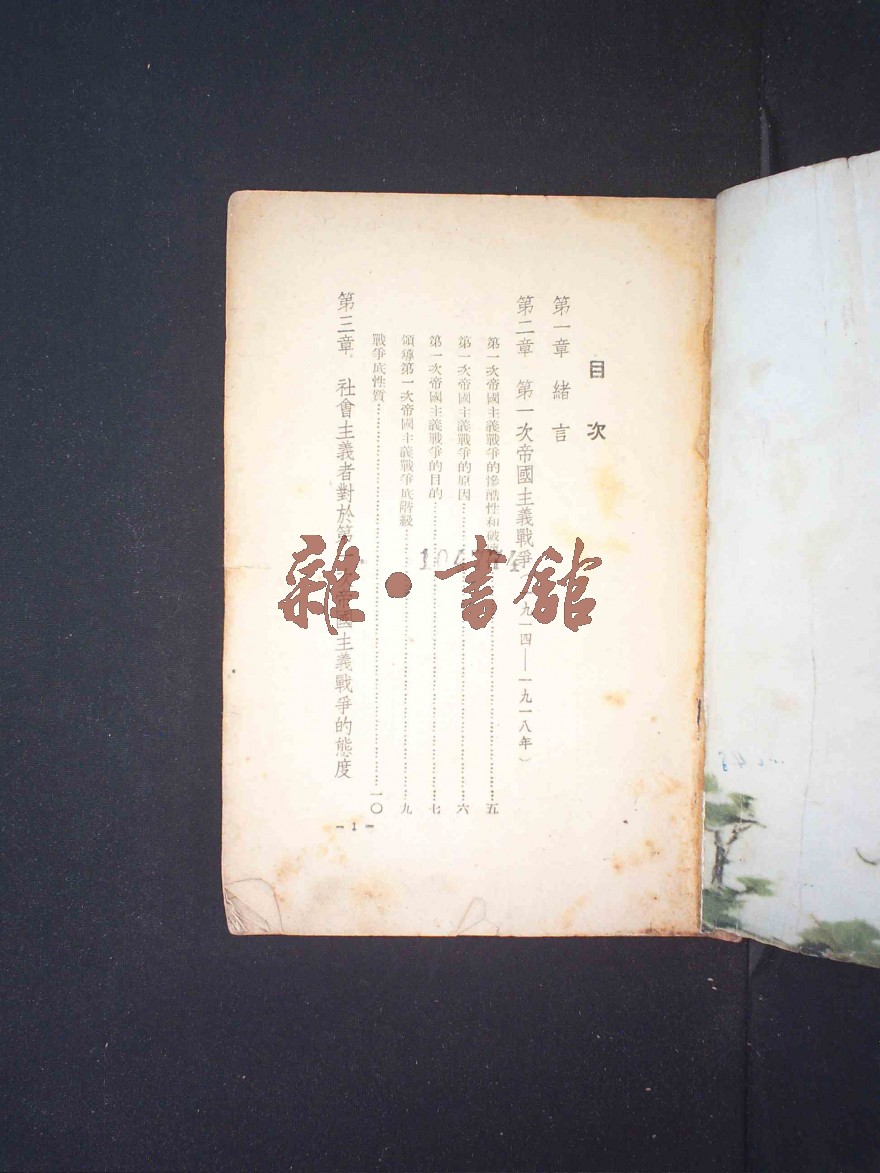 目次
第一章 緒言
第二章 第一次帝國主義戰爭 九一四——一九一八年）
第一次帝國主義戰爭的慘酷性和破……五
第一次帝國主義戰爭的原因……六
第一次帝國主義戰爭的目的……七
領導第一次帝國主義戰爭底階級……九
戰爭底性質……一〇
第三章 社會主義者對於第 次帝國主義戰爭的態度
- 1 -
雜·書館